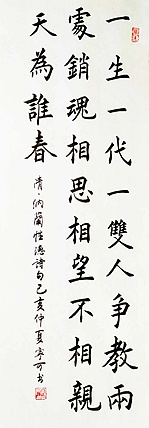 一生一代一雙人爭教兩
處銷魂相思相望不相親
天為誰春
清·納蘭性德詩句己亥仲夏宇可书